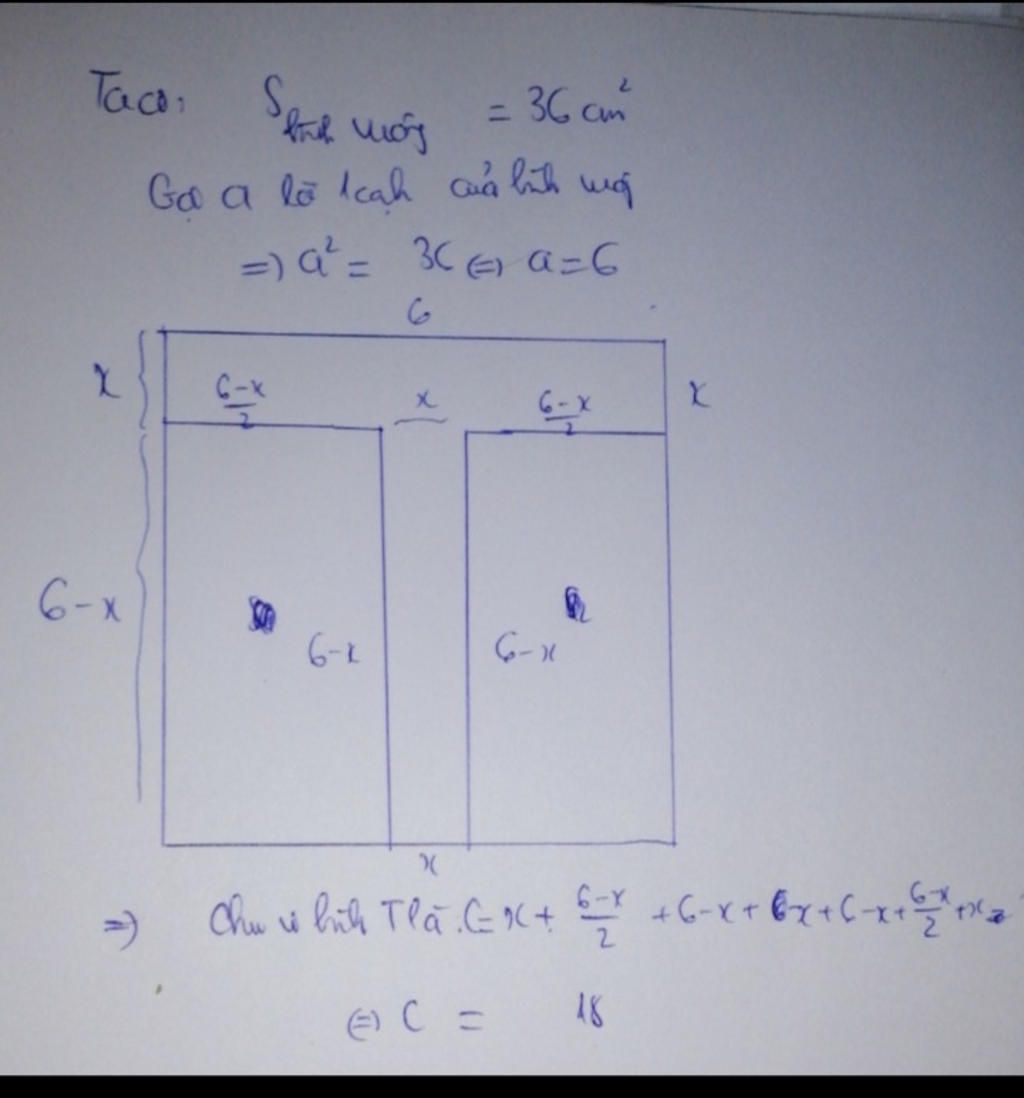 Ta có: S bình vuông = 36 cm²
Gọi a là 1 cạnh của hình vuông
=> a² = 36 <=> a = 6
6
x
6-x/2
x
6-x/2
x
6-x
6-x
6-x
x
=> Chu vi hình T là: C = x + 6-x/2 + 6-x + 6-x + 6-x + 6-x/2 + x =
<=> C = 18